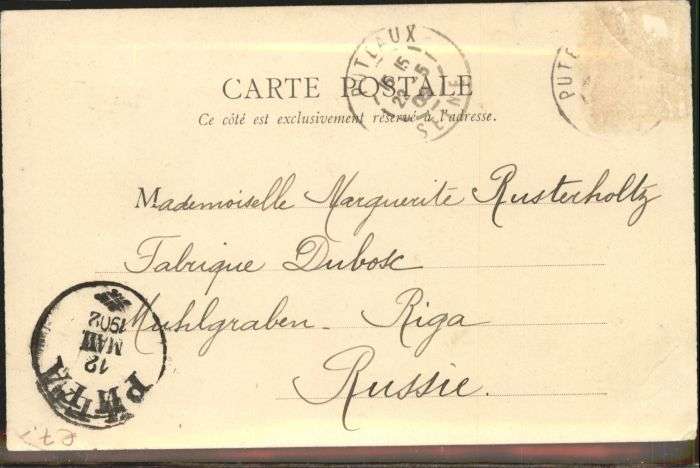 CARTE POSTALE
Ce côté est exclusivement réservé à l'adresse.
PUTEAUX
SEINE
PUTE
Mademoiselle Marguerite Rusterholtz
Fabrique Dubosc
Muhlgraben - Riga
Russie.
РИГА
12
МАЯ
1902